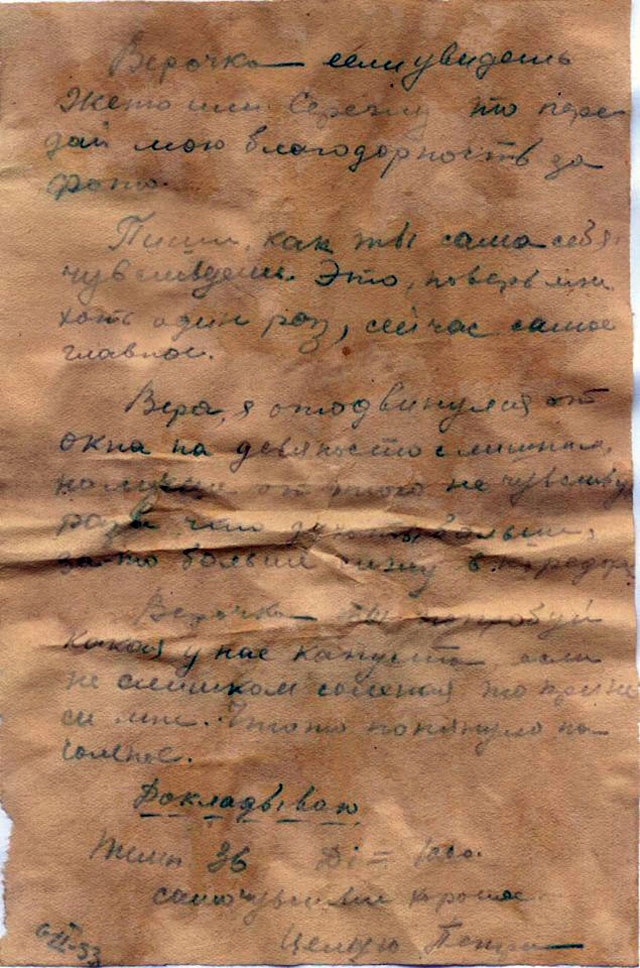 Верочка если увидешь
Жето или Сережу то пере
дай мою благодарность за
фото.
Пиши, как ты сама себя
чувствуешь. Это, поверь мне
хоть один раз, сейчас самое
главное.
Вера, я отодвинулся от
окна на девяносто с лишним,
но лучше от этого не чувству
разве чем больше,
за-то больше лежу в коредоре
Верочка ты попробуй
какая у нас капуста если
не слишком соленая то прине
си мне. Что то потянуло на
соленое.
Докладываю
Темп 36 Di =
самочувствие хорошее
Целую
6-II-53